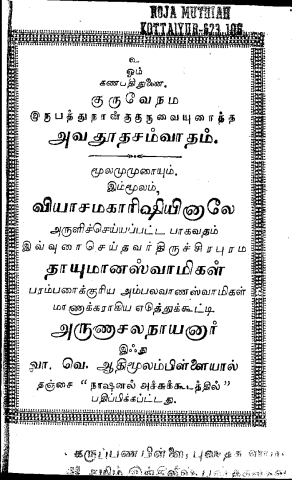 ROJA MUTHIAH
KOTTAIYUR-623 106
உ
ஓம்
கணபதிதுணை.
குருவேநம
இருபத்துநான்குகுருவையுரைத்த
அவதூதசம்வாதம்.
மூலமுமுரையும்.
இம்மூலம்,
வியாசமகாரிஷியினாலே
அருளிச்செய்யப்பட்ட பாகவதம்
இவ்வுரைசெய்தவர் திருச்சிரபுரம்
தாயுமானஸ்வாமிகள்
பரம்பரைக்குரிய அம்பலவாணஸ்வாமிகள்
மாணாக்கராகிய எடுத்துக்கூட்டி
அருணாசலநாயனார்
இஃது
வா. வெ. ஆதிமூலம்பிள்ளையால்
தஞ்சை "நாஷனல் அச்சுக்கூடத்தில்"
பதிப்பிக்கப்பட்டது.
கருப்பணபிள்ளை, புஸ்தக